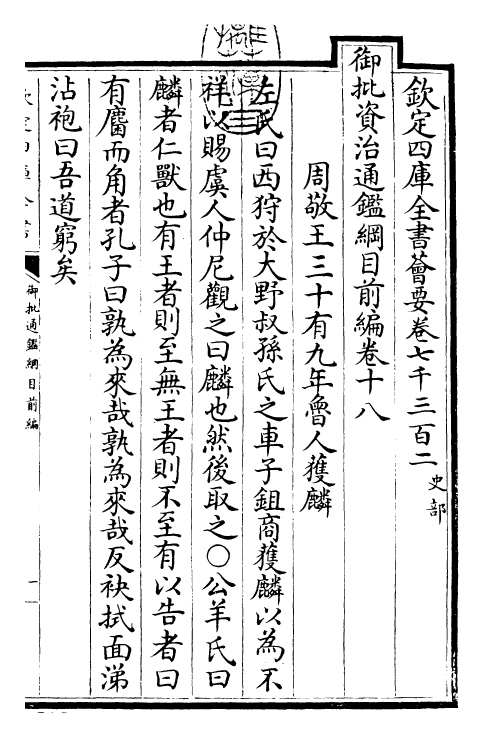 欽定四庫全書薈要卷七千三百二 史部
御批資治通鑑綱目前編卷十八
周敬王三十有九年魯人獲麟
左氏曰西狩於大野叔孫氏之車子鉏商獲麟以為不
祥以賜虞人仲尼觀之曰麟也然後取之○公羊氏曰
麟者仁獸也有王者則至無王者則不至有以告者曰
有麕而角者孔子曰孰為來哉孰為來哉反袂拭面涕
沾袍曰吾道窮矣
御批通鑑綱目前編
一